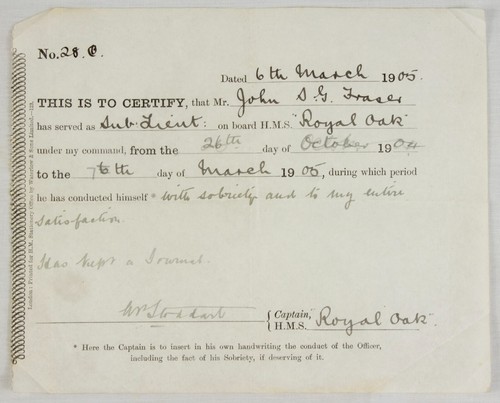 No. 28.C.
Dated 6th March 1905.
THIS IS TO CERTIFY, that Mr. John S.G. Fraser
has served as Sub-Lieut: on board H.M.S. "Royal Oak"
under my command, from the 26th day of October 1904
to the 7th day of March 1905, during which period
he has conducted himself* with sobriety and to my entire
satisfaction.
Has kept a Journal.
Stoddart { Captain,
H.M.S. "Royal Oak".
* Here the Captain is to insert in his own handwriting the conduct of the Officer,
including the fact of his Sobriety, if deserving of it.
London: Printed for H.M. Stationery Office by Waterlow & Sons Limited.